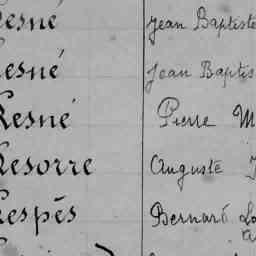 Resné Jean Baptiste
Resné Jean Baptis
Resné Pierre M
Resorre Auguste
Respès Bernard Lo